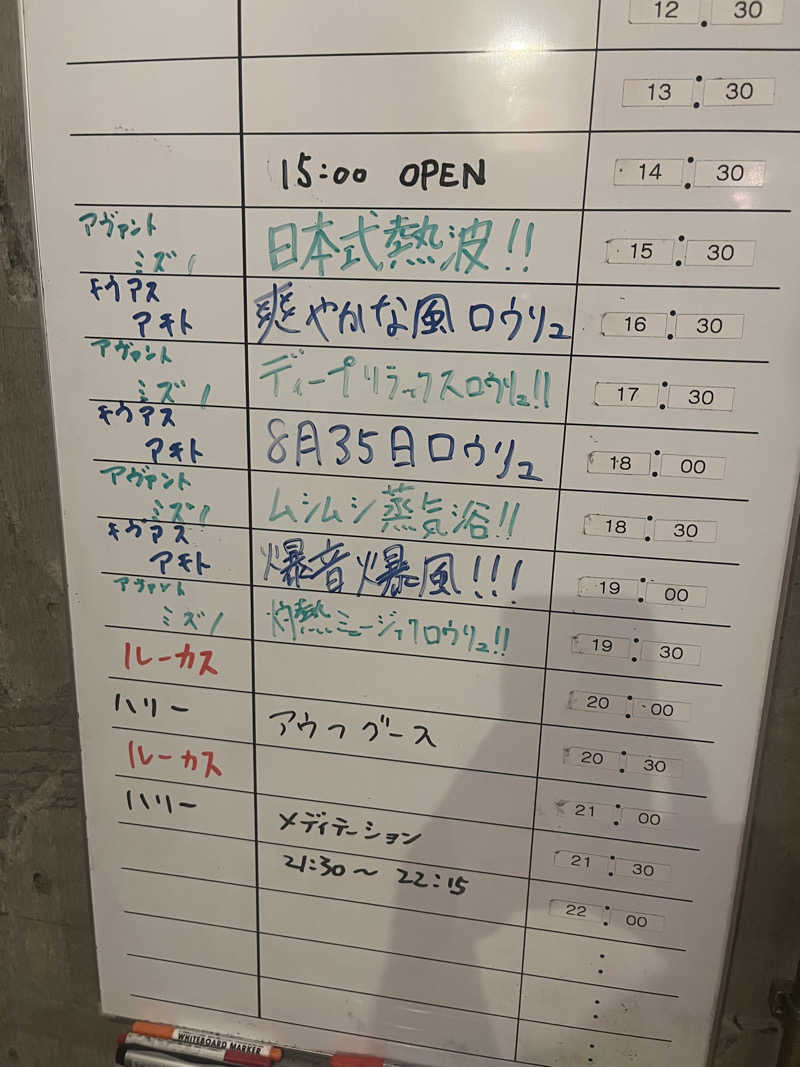 12:30
13:30
15:00 OPEN 14:30
アヴァント
ミズノ 日本式熱波!! 15:30
キウアス
アキト 爽やかな風ロウリュ 16:30
アヴァント
ミズノ ディープリラックスロウリュ!! 17:30
キウアス
アキト 8月35日ロウリュ 18:00
アヴァント
ミズノ ムシムシ蒸気浴!! 18:30
キヴアス
アキト 爆音爆風!!! 19:00
アヴァント
ミズノ 灼熱ミュージックロウリュ!! 19:30
ルーカス 20:00
ハリー アウフグース 20:30
ルーカス 21:00
ハリー メディテーション 21:30
21:30〜22:15 22:00
:
:
:
WHITEBOARD MARKER